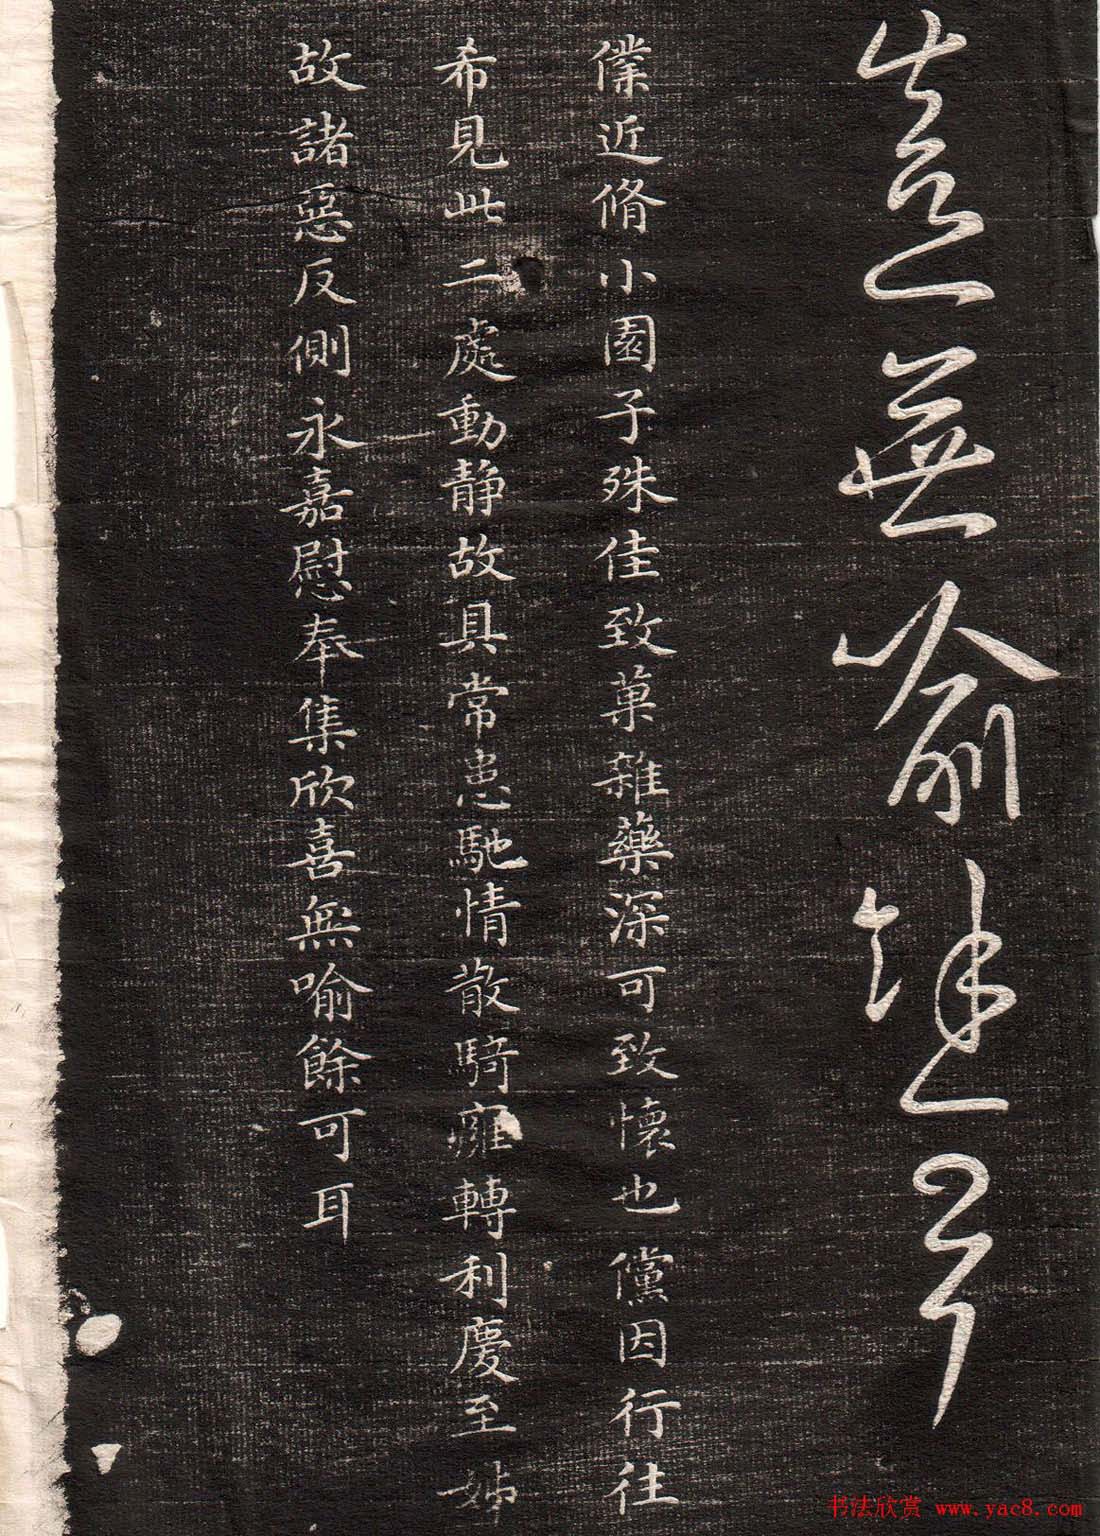 喜無喻餘可耳
僕近脩小園子殊佳致菓雜藥深可致懷也儻因行往
希見此二處動靜故具常患馳情散騎癰轉利慶至姊
故諸惡反側永嘉慰奉集欣喜無喻餘可耳
书法欣赏 www.yac8.com